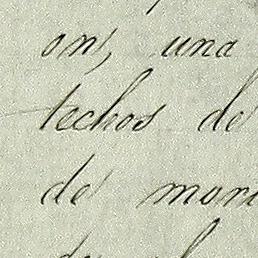 on, una
techos de
de mon
de